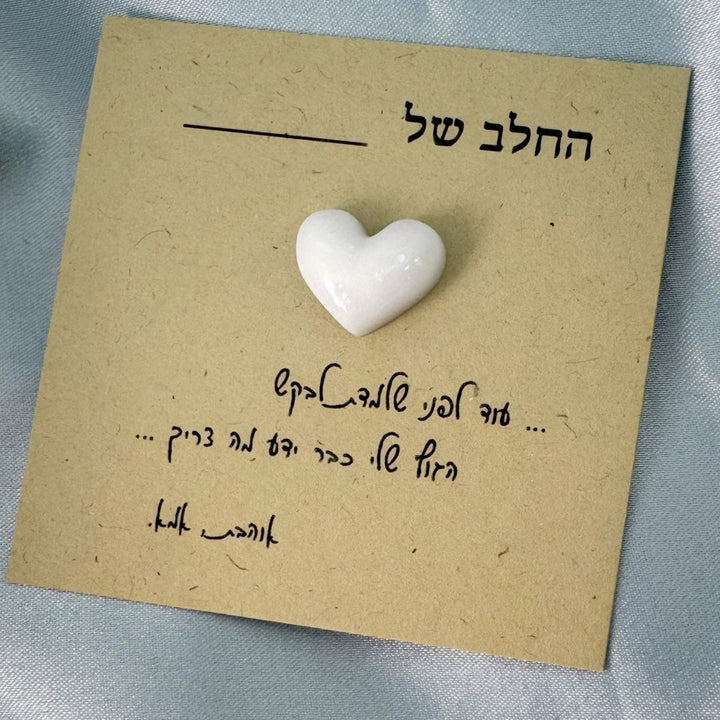 החלב של ________
... עוד לפני שלמדת לבקש
הגוף שלי כבר ידע מה צריך ...
אוהבת, אמא.